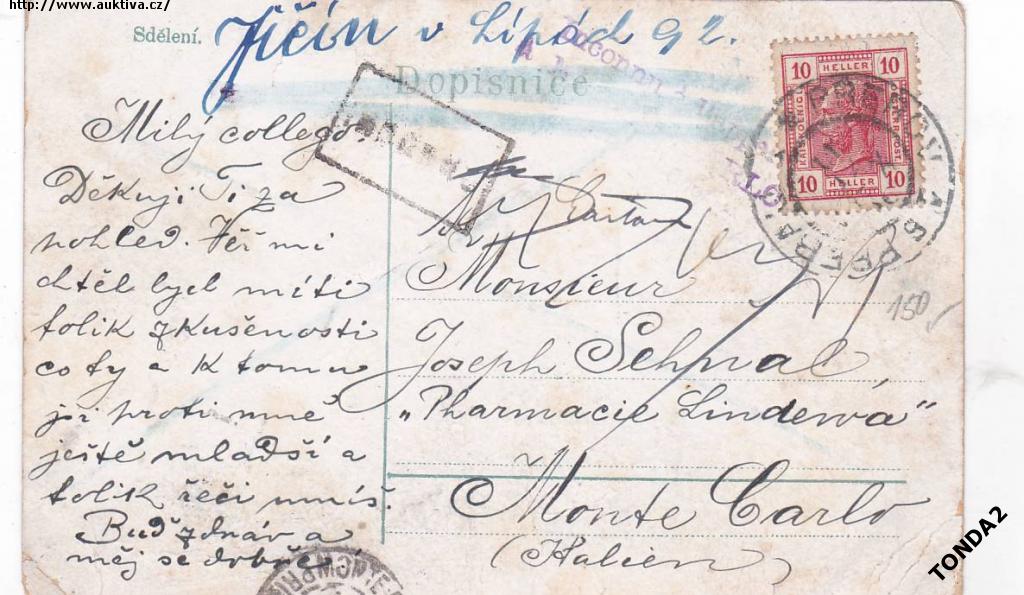 http://www.auktiva.cz/
Sdělení.
Jičín v Lípách 92.
Dopisnice
Milý collego,
Děkuji Ti za
pohled. Věř mi
chtěl bych míti
tolik zkušenosti
co ty a k tomu
jsi proti mně
ještě mladší a
tolik řečí umíš.
Buď zdráv a
měj se dobře
10 HELLER 10
10 HELLER 10
Monsieur
Joseph Sehnal,
„Pharmacie Lindewa"
Monte Carlo
(Italien)
150
TONDA2